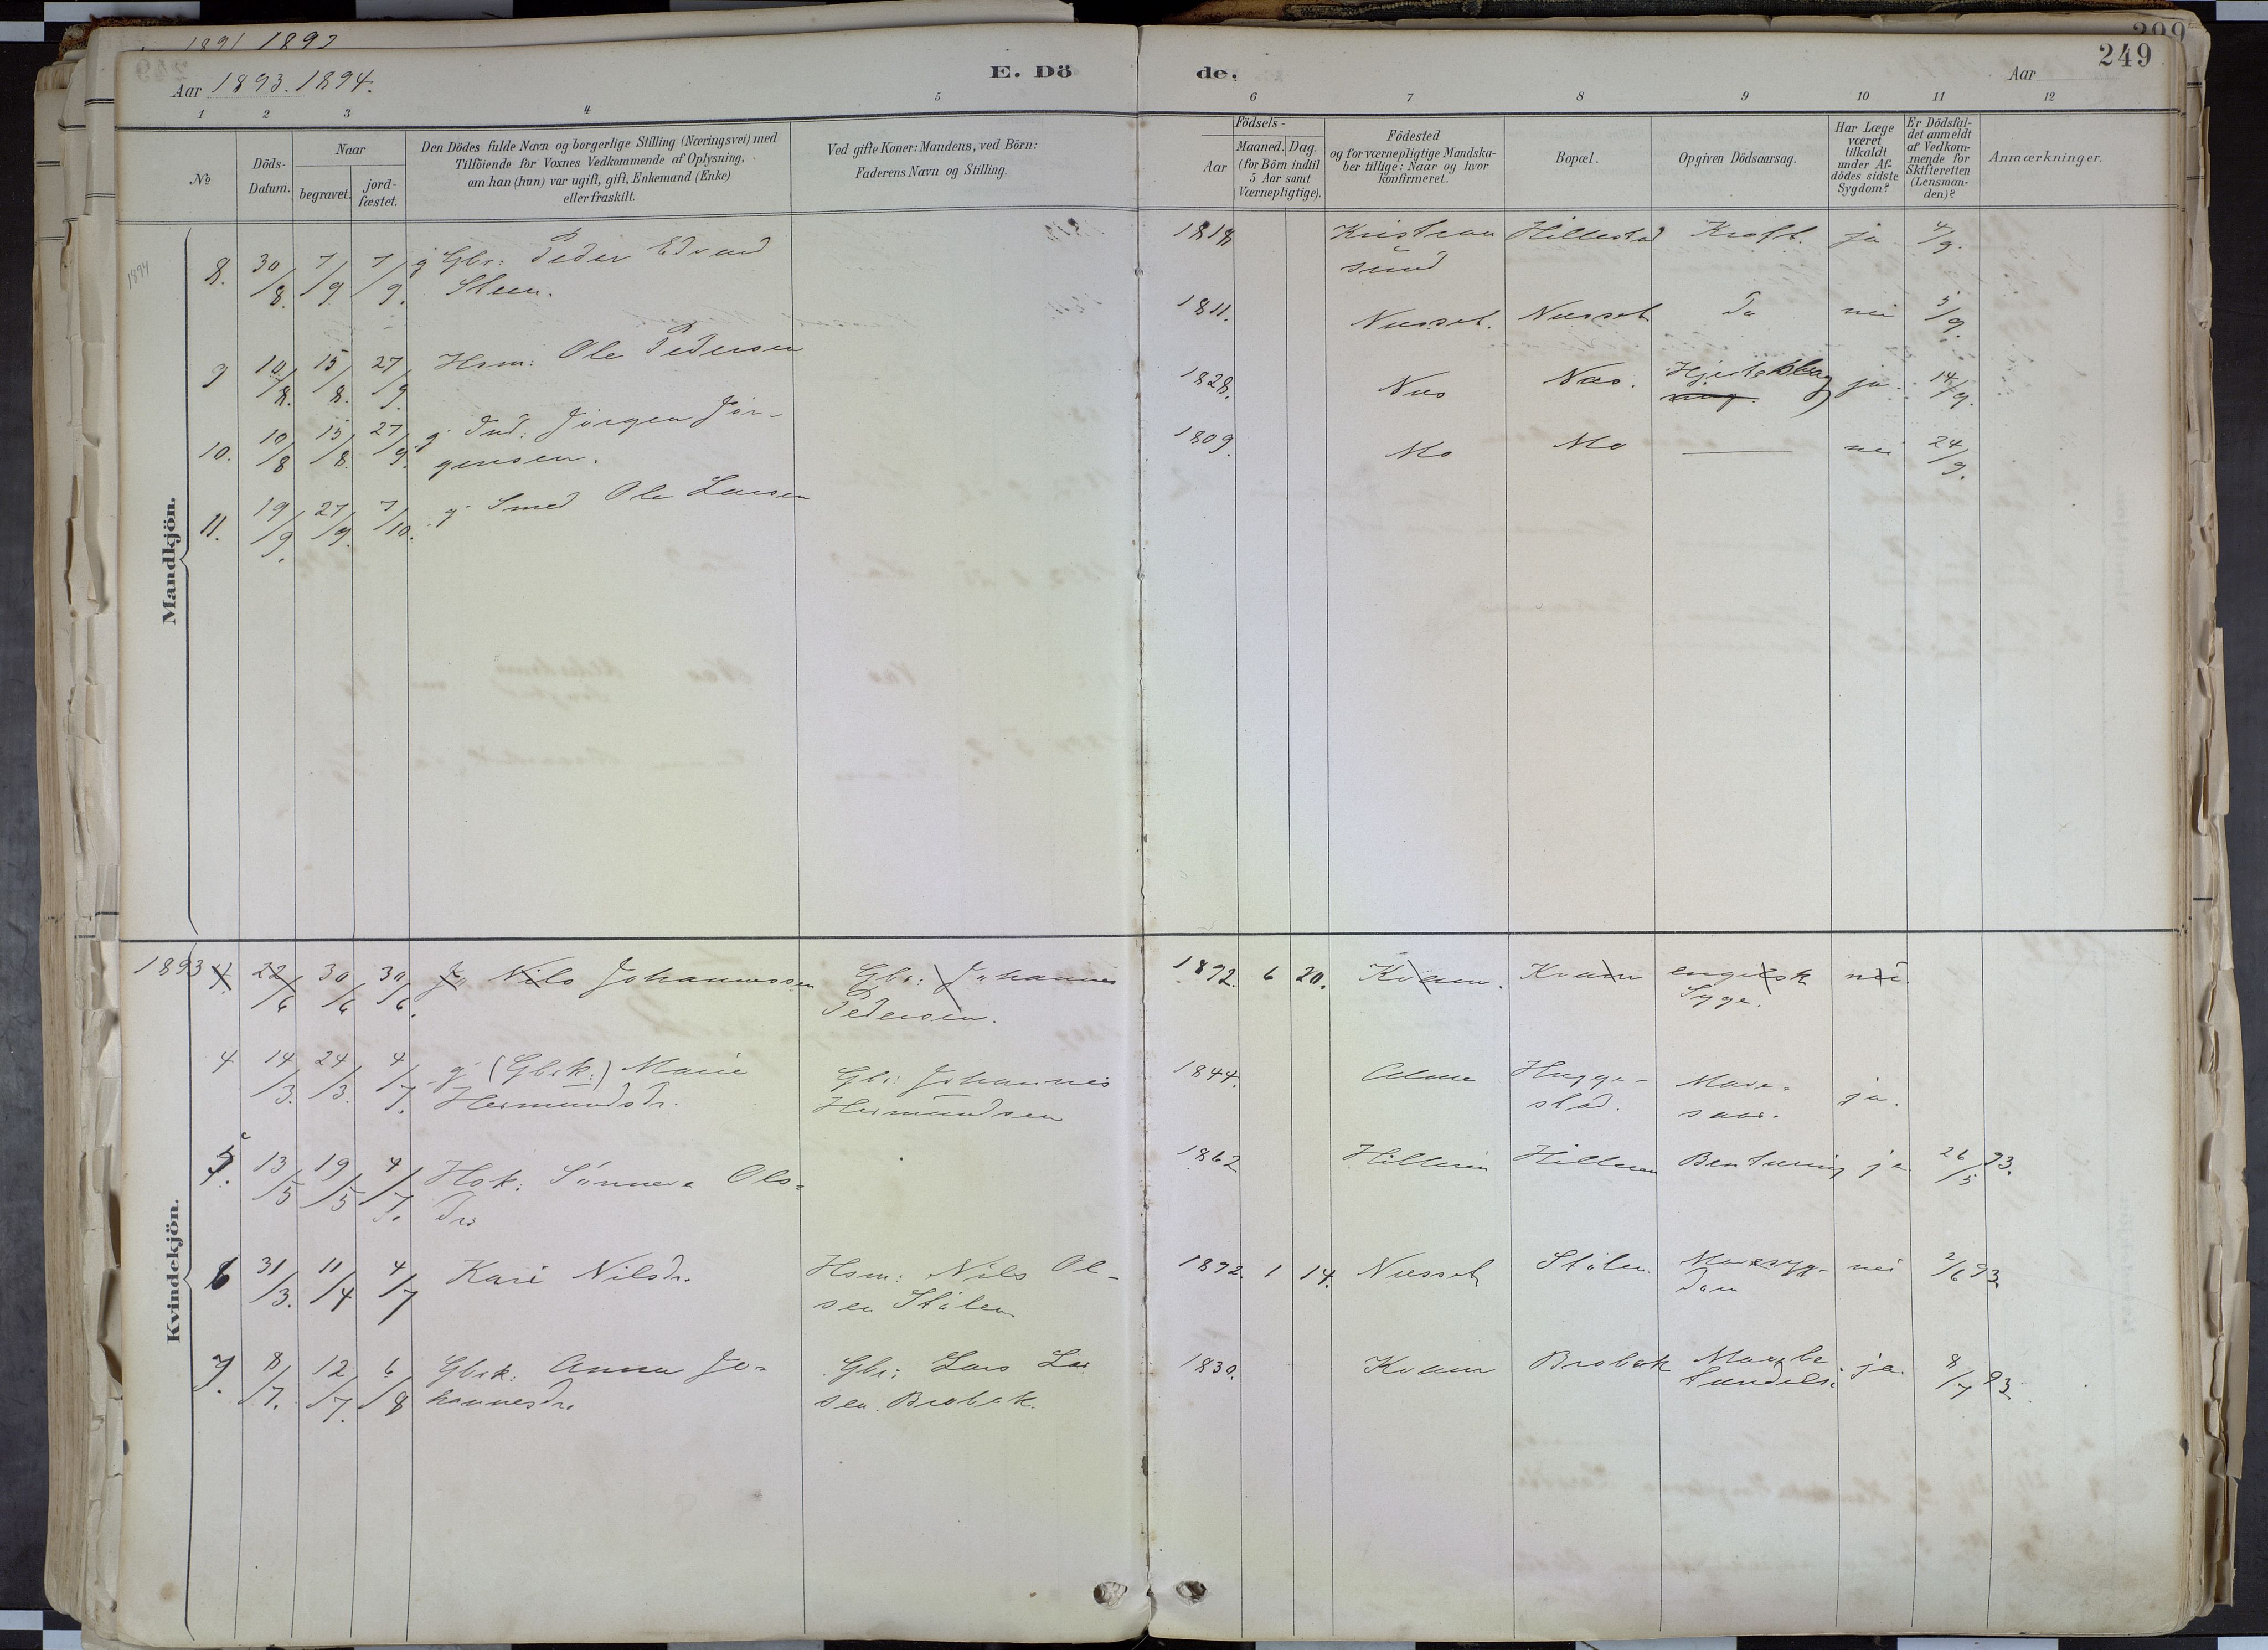 1891 1892
299
249
Aar 1893. 1894.
E. Dö
de.
Aar
1
2
3
4
5
6
7
8
9
10
11
12
No
Döds-
Datum.
Naar
begravet.
jord-
fæstet.
Den Dödes fulde Navn og borgerlige Stilling (Næringsvei) med
Tilföiende for Voxnes Vedkommende af Oplysning,
om han (hun) var ugift, gift, Enkemand (Enke)
eller fraskilt.
Ved gifte Koner: Mandens, ved Börn:
Faderens Navn og Stilling.
Födsels-
Aar
Maaned. Dag.
(for Börn indtil
5 Aar samt
Værnepligtige).
Födested
og for værnepligtige Mandska-
ber tillige: Naar og hvor
konfirmeret.
Bopæl.
Opgiven Dödsaarsag.
Har Læge
været
tilkaldt
under Af-
dödes sidste
Sygdom?
Er Dödsfal-
det anmeldt
af Vedkom-
mende for
Skifteretten
(Lensman-
den)?
Anmærkninger.
Mandkjön.
1894
8. 30/8. 7/9 7/9. g Gbr: Peder Edvard 1818 Kristian Hillestad Kræft. ja 4/9.
Steen. sund
9 10/8. 15/8. 27/9. Hsm: Ole Pedersen 1811. Nusset. Nusset Do nei 5/9.
10. 10/8 15/8. 27/9. g Ind: Jörgen Jör- 1828. Næs Næs. Hjerteslag ja. 14/9.
gensen.
11. 19/9. 27/9. 7/10. g Smed Ole Larsen 1809. Mo Mo — nei 24/9.
Kvindekjön.
1893 4. 22/6 30/6 30/6. Nils Johannessen Gbr: Johannes 1892. 6 20. Kvam. Kvam engelsk nei.
Pedersen. Syge.
4 14/3. 24/3. 4/7. g (Gbrk:) Marie Gbr: Johannes 1844. Alme Hugge- Mave- ja.
Hermundsdr. Hermundsen stad. saar.
5. 13/5 19/5 4/7. Hsk: Sönneva Ols- 1862 Hilleren Hilleren ja 26/5 93.
Dr.
6 31/3. 11/4 4/7 Kari Nilsdr. Hsm: Nils Ol- 1892. 1 14. Nusset Stölen. Mavesyg- nei 2/6 93.
sen Stölen dom
7. 8/7. 12/7. 6/8 Gbrk: Anna Jo- Gbr: Lars Lar 1830. Kvam Brobak Mavebe ja. 8/7 93.
hannesdr. sen Brobak. tændelse